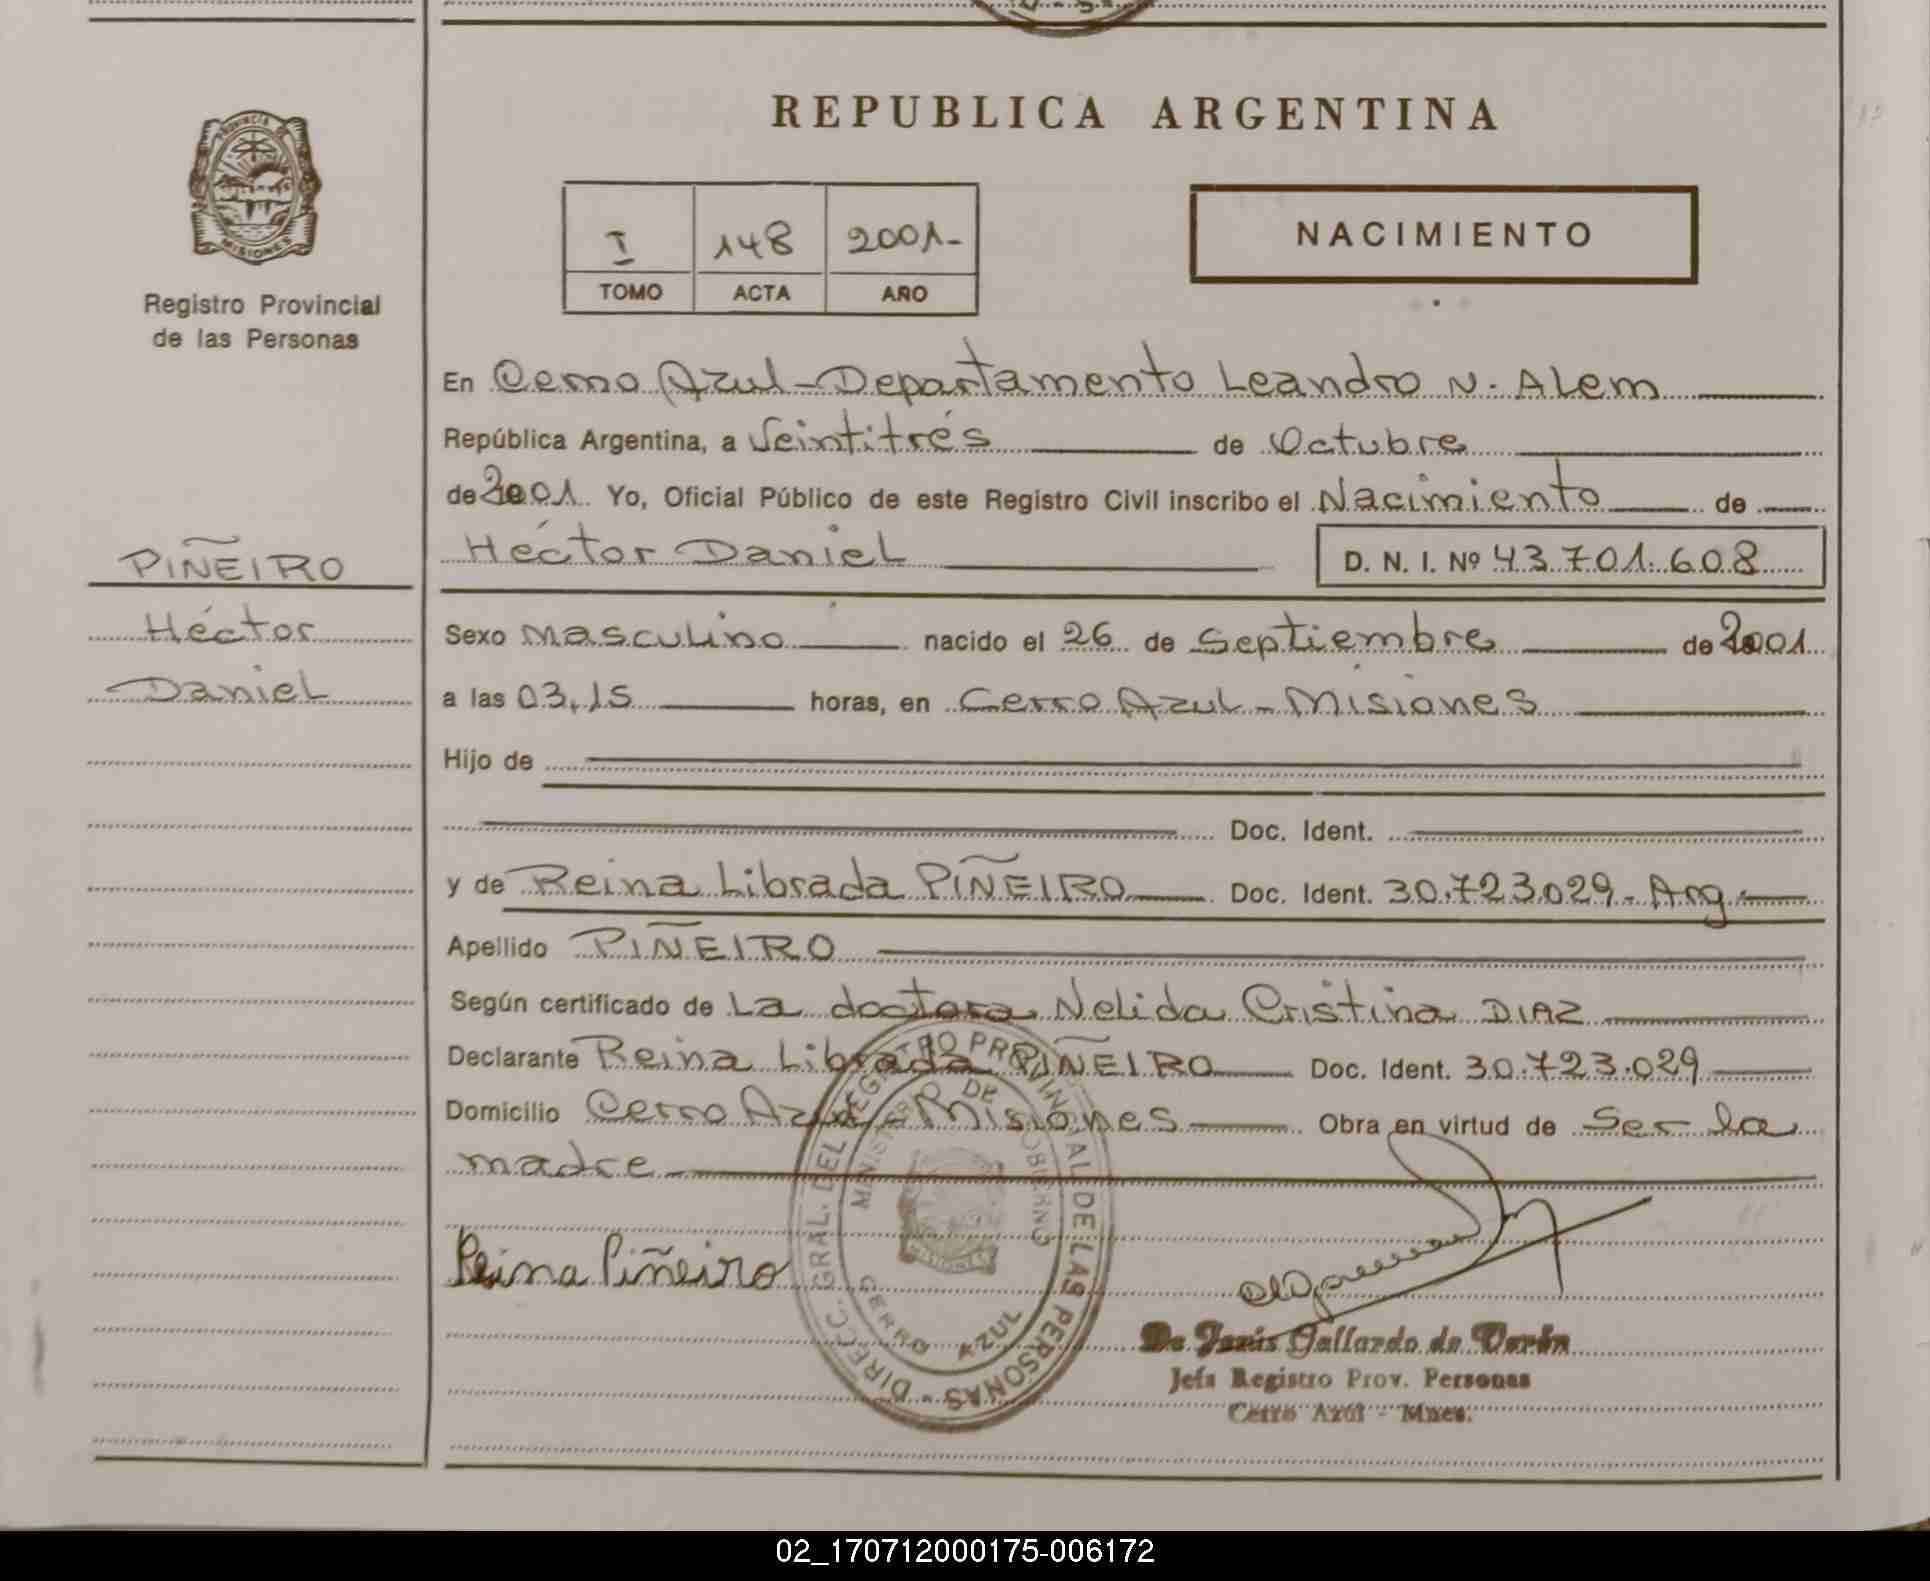 REPUBLICA ARGENTINA
PROVINCIA DE
MISIONES
Registro Provincial
de las Personas
I 148 2001-
TOMO ACTA AÑO
NACIMIENTO
En Cerro Azul - Departamento Leandro N. Alem
República Argentina, a Veintitrés de Octubre
de 2001 Yo, Oficial Público de este Registro Civil inscribo el Nacimiento de
Héctor Daniel D. N. I. Nº 43.701.608
PIÑEIRO
Héctor
Daniel
Sexo masculino nacido el 26 de Septiembre de 2001
a las 03,15 horas, en Cerro Azul - Misiones
Hijo de
Doc. Ident.
y de Reina Librada PIÑEIRO Doc. Ident. 30.723.029 - Arg.
Apellido PIÑEIRO
Según certificado de La doctora Nelida Cristina DIAZ
Declarante Reina Librada PIÑEIRO Doc. Ident. 30.723.029
Domicilio Cerro Azul - Misiones Obra en virtud de Ser la
madre
Reina Piñeiro
DIRECC. GRAL. DEL REGISTRO PROVINCIAL DE LAS PERSONAS -
MINISTERIO DE GOBIERNO
MISIONES
CERRO AZUL
De Jesús Gallardo de Verón
Jefa Registro Prov. Personas
Cerro Azul - Mnes.
02_170712000175-006172